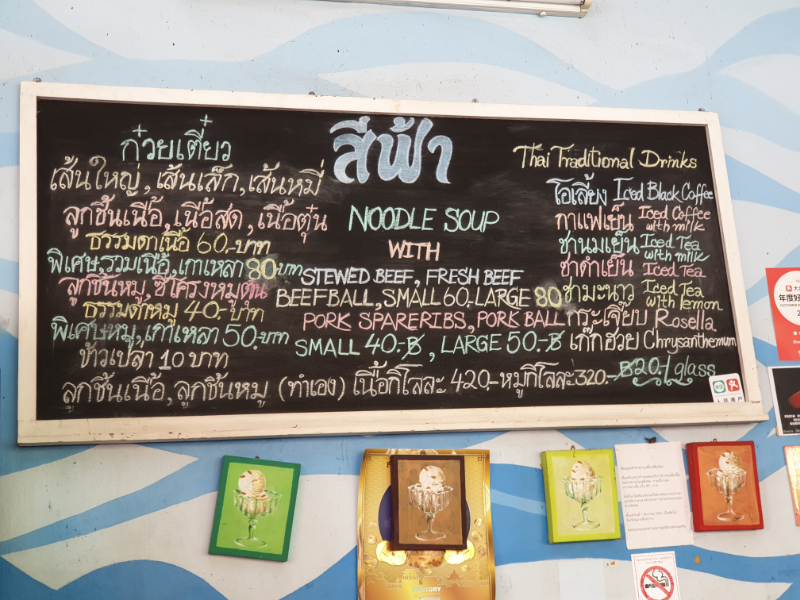 สีฟ้า
ก๋วยเตี๋ยว
เส้นใหญ่, เส้นเล็ก, เส้นหมี่
ลูกชิ้นเนื้อ, เนื้อสด, เนื้อตุ๋น
ธรรมดาเนื้อ 60.-บาท
พิเศษ, รวมเนื้อ, เกาเหลา 80 บาท
ลูกชิ้นหมู, ซี่โครงหมูตุ๋น
ธรรมดาหมู 40.-บาท
พิเศษหมู, เกาเหลา 50.-บาท
ข้าวเปล่า 10 บาท
NOODLE SOUP
WITH
STEWED BEEF, FRESH BEEF
BEEFBALL, SMALL 60.LARGE 80
PORK SPARERIBS, PORK BALL
SMALL 40.-B, LARGE 50.-B
Thai Traditional Drinks
โอเลี้ยง Iced Black Coffee
กาแฟเย็น Iced Coffee with milk
ชานมเย็น Iced Tea with milk
ชาดำเย็น Iced Tea
ชามะนาว Iced Tea with lemon
กระเจี๊ยบ Rosella
เก๊กฮวย Chrysanthemum
฿20.-/glass
ลูกชิ้นเนื้อ, ลูกชิ้นหมู (ทำเอง) เนื้อกิโลละ 420.-หมูกิโลละ 320.-